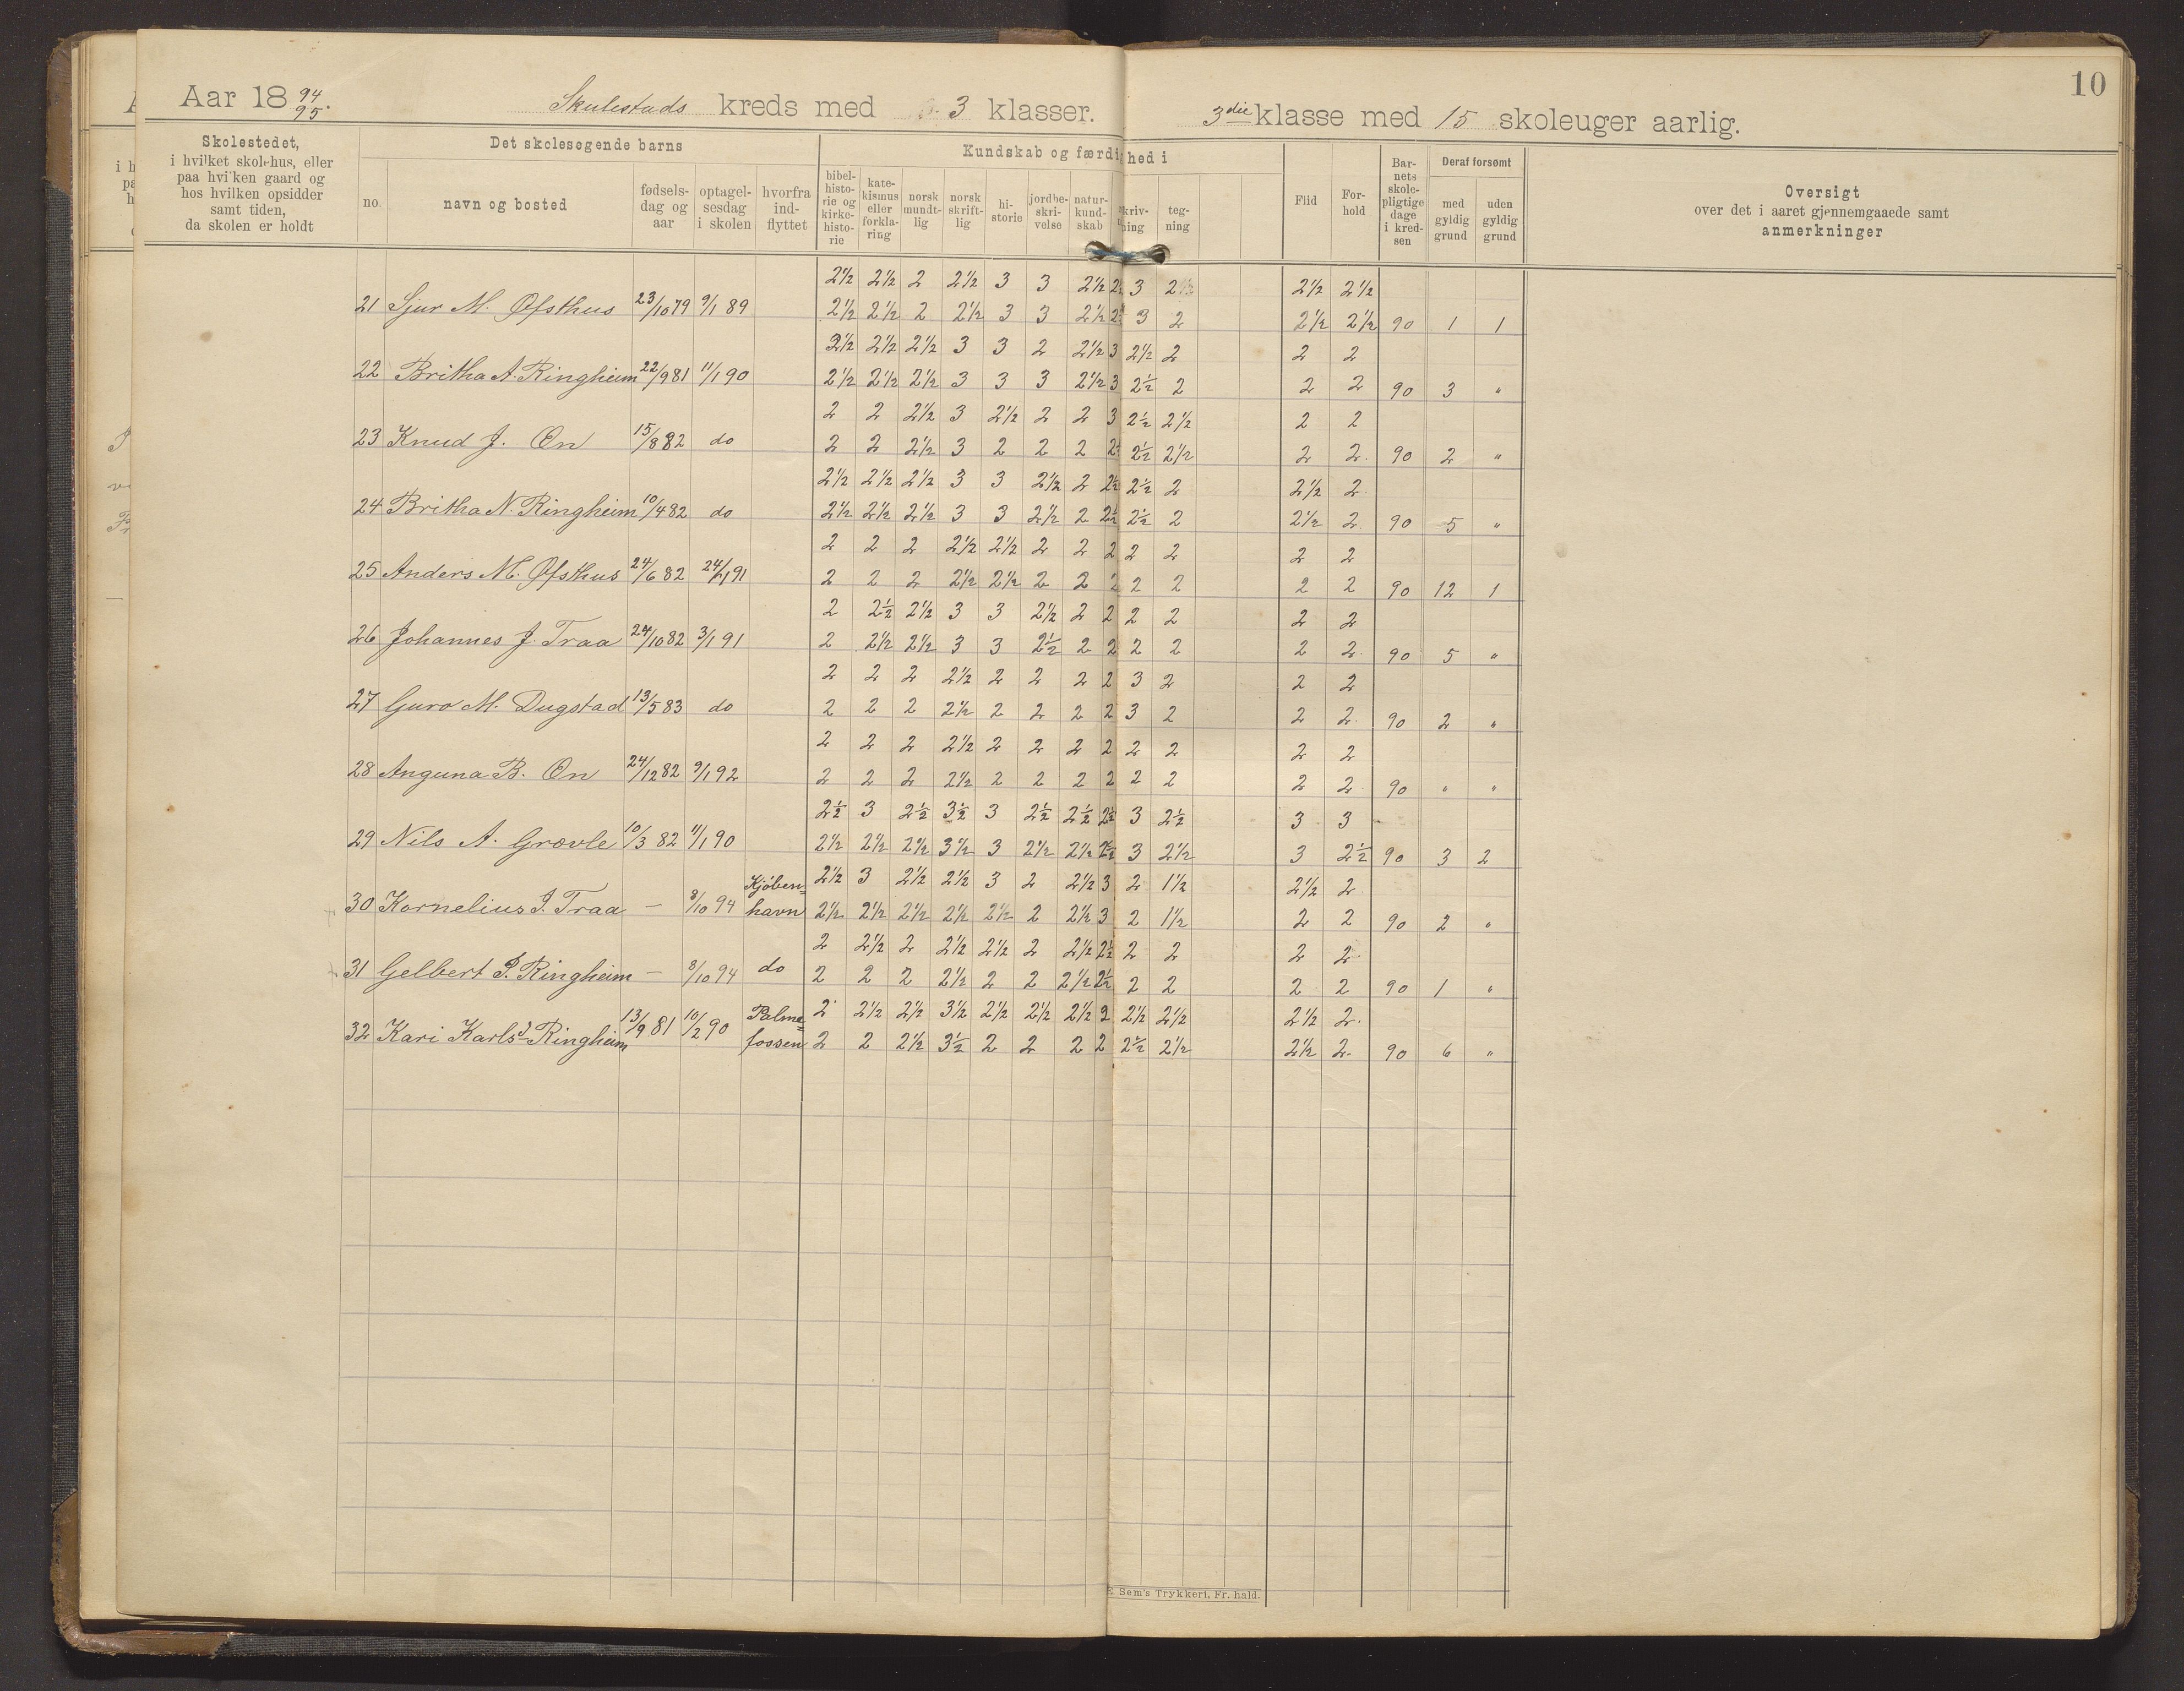 10
Aar 18 94/95. Skulestads kreds med 3 klasser. 3die klasse med 15 skoleuger aarlig.
Skolestedet,
i hvilket skolehus, eller
paa hvilken gaard og
hos hvilken opsidder
samt tiden,
da skolen er holdt
Det skolesøgende barns
no.
navn og bosted
fødsels-
dag og
aar
optagel-
sesdag
i skolen
hvorfra
ind-
flyttet
Kundskab og færdi hed i
bibel-
histo-
rie og
kirke-
histo-
rie
kate-
kismus
eller
forkla-
ring
norsk
mundt-
lig
norsk
skrift-
lig
hi-
storie
jordbe-
skri-
velse
natur-
kund-
skab
skriv-
ning
teg-
ning
Flid
For-
hold
Bar-
nets
skole-
pligtige
dage
i kred-
sen
Deraf forsømt
med
gyldig
grund
uden
gyldig
grund
Oversigt
over det i aaret gjennemgaaede samt
anmerkninger
2½ 2½ 2 2½ 3 3 2½ 2½ 3 2½ 2½ 2½
21 Sjur M. Øfsthus 23/10 79 9/1 89 2½ 2½ 2 2½ 3 3 2½ 2½ 3 2 2½ 2½ 90 1 1
2½ 2½ 2½ 3 3 2 2½ 3 2½ 2 2 2
22 Britha A. Ringheim 22/9 81 11/1 90 2½ 2½ 2½ 3 3 3 2½ 3 2½ 2 2 2 90 3 "
2 2 2½ 3 2½ 2 2 3 2½ 2½ 2 2
23 Knud J. Øn 15/8 82 do 2 2 2½ 3 2 2 2 2½ 2½ 2½ 2 2. 90 2 "
2½ 2½ 2½ 3 3 2½ 2 2½ 2½ 2 2½ 2
24 Britha N. Ringheim 10/4 82 do 2½ 2½ 2½ 3 3 2½ 2 2½ 2½ 2 2½ 2. 90 5 "
2 2 2 2½ 2½ 2 2 2 2 2 2 2
25 Anders M. Øfsthus 24/6 82 24/1 91 2 2 2 2½ 2½ 2 2 2 2 2 2 2 90 12 1
2 2½ 2½ 3 3 2½ 2 2 2 2 2 2
26 Johannes J. Traa 24/10 82 3/1 91 2 2½ 2½ 3 3 2½ 2 2 2 2 2 2. 90 5 "
2 2 2 2½ 2 2 2 2 3 2 2 2
27 Guro M. Dugstad 13/5 83 do 2 2 2 2½ 2 2 2 2 3 2 2 2. 90 2 "
2 2 2 2½ 2 2 2 2 2 2 2 2
28 Anguna B. Øn 24/12 82 9/1 92 2 2 2 2½ 2 2 2 2 2 2 2 2 90 " "
2½ 3 2½ 3½ 3 2½ 2½ 2½ 3 2½ 3 3
29 Nils A. Grovle 10/3 82 11/1 90 2½ 2½ 2½ 3½ 3 2½ 2½ 2½ 3 2½ 3 2½ 90 3 2
Kjøben= 2½ 3 2½ 2½ 3 2 2½ 3 2 1½ 2½ 2.
30 Kornelius J. Traa — 8/10 94 havn 2½ 2½ 2½ 2½ 2½ 2 2½ 3 2 1½ 2 2 90 2 "
2 2½ 2 2½ 2½ 2 2½ 2½ 2 2 2 2.
31 Gelbert P. Ringheim — 8/10 94 do 2 2 2 2½ 2 2 2½ 2½ 2 2 2 2 90 1 "
Palme= 2 2½ 2½ 3½ 2½ 2½ 2½ 2 2½ 2½ 2½ 2.
32 Kari Karlsd. Ringheim 13/9 81 10/2 90 fossen 2 2 2½ 3½ 2 2 2 2 2½ 2½ 2½ 2. 90 6 "
E. Sem's Trykkeri, Fr. hald.